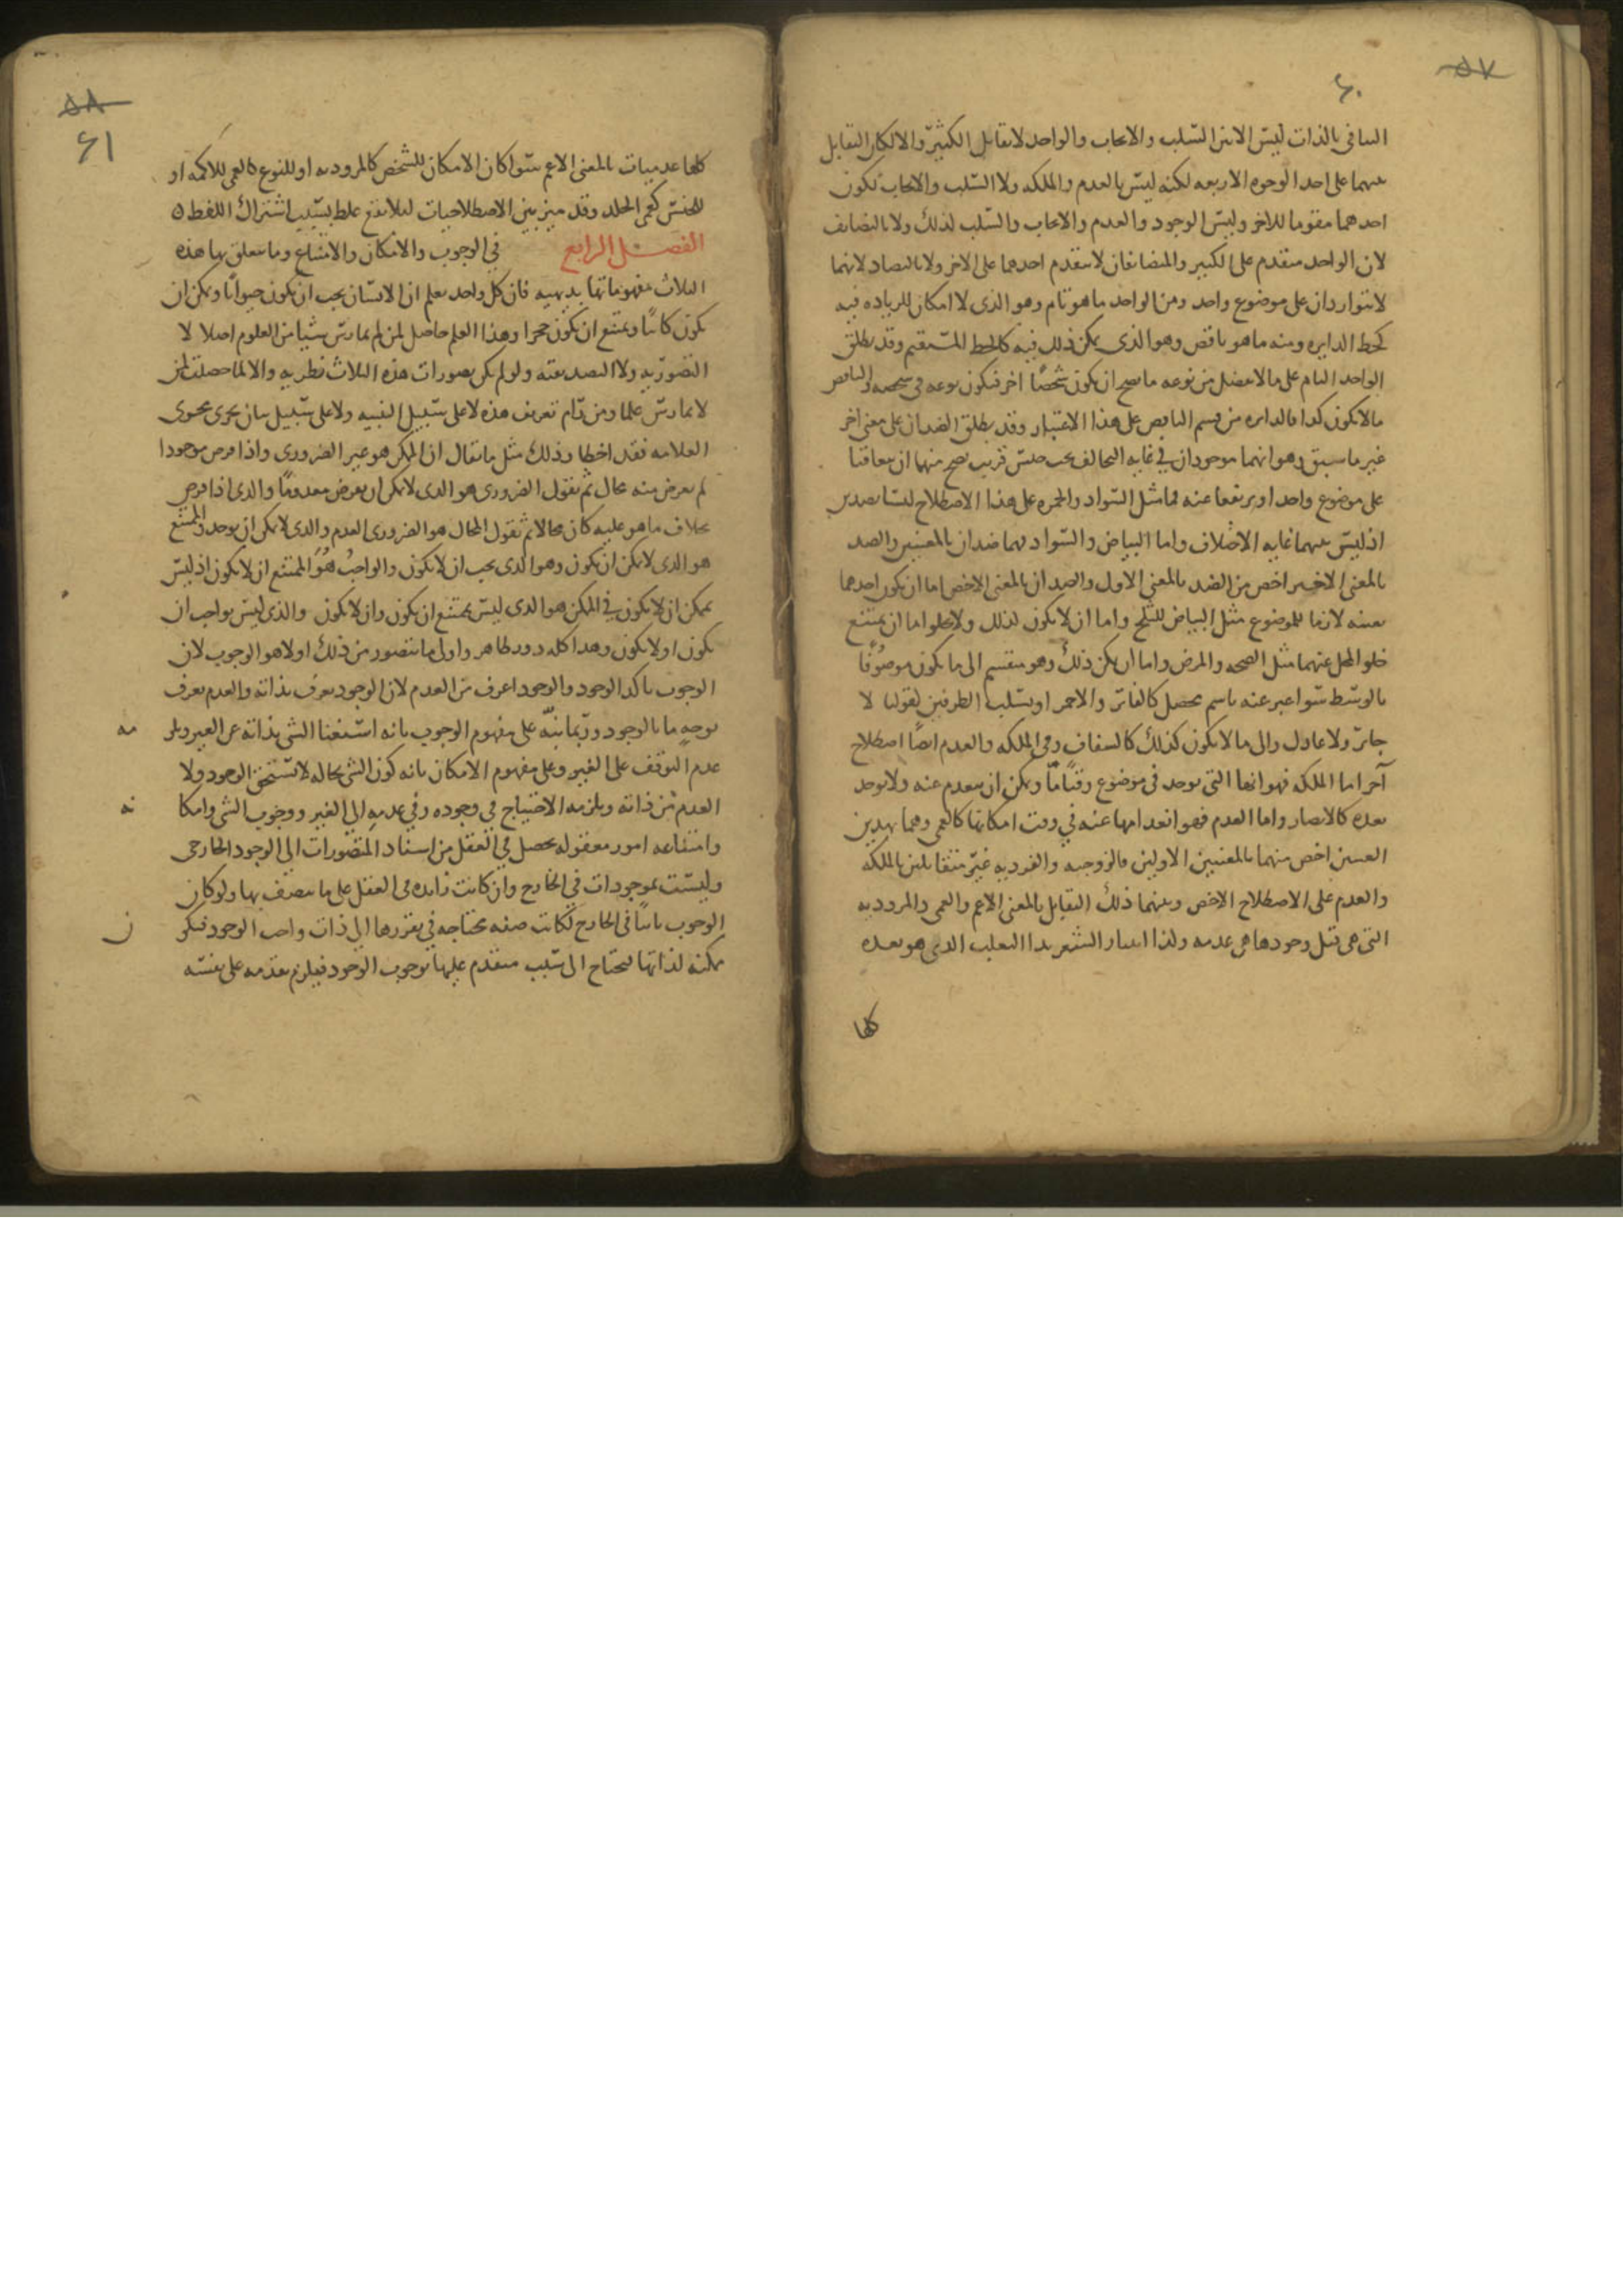 ٥٧
٦٠
التنافى بالذات ليس الا بين السلب والايجاب والواحد لا يقابل الكثير والا لكان التقابل
بينهما على احد الوجوه الاربعه لكنه ليس بالعدم والملكه ولا السلب والايجاب لكون
احدهما مقوما للاخر وليس الوجود والعدم والايجاب والسلب لذلك ولا بالتضايف
لان الواحد متقدم على الكثير والمتضايفان لا يتقدم احدهما على الاخر ولا بالتضاد لانهما
لا يتواردان على موضوع واحد ومن الواحد ما هو تام وهو الذى لا امكان للزياده فيه
كخط الدايره ومنه ما هو ناقص وهو الذى يمكن ذلك فيه كالخط المستقيم وقد يطلق
الواحد التام على ما لا يفضل من نوعه ما يصح ان يكون شخصًا اخر فيكون نوعه فى شخصه والناقص
ما لا يكون كذا فالدايره من قسم الناقص على هذا الاعتبار وقد يطلق الضدان على معنى اخر
غير ما سبق وهو انهما موجودان فى غايه التخالف تحت جنس قريب يصح منهما ان يتعاقبا
على موضوع واحد او يرتفعا عنه فمثل السواد والحمره على هذا الاصطلاح ليسا بضدين
اذ ليس بينهما غايه الاختلاف واما البياض والسواد فهما ضدان بالمعنيين والضد
بالمعنى الاخير اخص من الضد بالمعنى الاول والضدان بالمعنى الاخص اما ان يكون احدهما
بعينه لازما للموضوع مثل البياض للثلج واما ان لا يكون كذلك ولا يخلوا اما ان يمتنع
خلو المحل عنهما مثل الصحه والمرض واما ان يمكن ذلك وهو منقسم الى ما يكون موصوفًا
بالوسط سوا عبر عنه باسم محصل كالفاتر والاحمر او بسلب الطرفين لقولنا لا
جاير ولا عادل والى ما لا يكون كذلك كالشفاف وفى الملكه والعدم ايضًا اصطلاح
آخر اما الملكه فهو انها التى توجد فى موضوع وقتًا ما ويمكن ان ينعدم عنه ولا يوجد
بعده كالابصار واما العدم فهو انعدامها عنه فى وقت امكانها كالعمى وهما بهذين
المعنيين اخص منهما بالمعنيين الاولين فالزوجيه والفرديه غير متقابلين بالملكه
والعدم على الاصطلاح الاخص وبينهما ذلك التقابل بالمعنى الاعم والعمى والمروديه
التى هى قبل وجودها هى عدمه ولذا انتثار الشعر بداء الثعلب الذى هو بعده
كلها
٥٨
٦١
كلها عدميات بالمعنى الاعم سوا كان الامكان للشخص كالمروديه او للنوع كالعمى للاكمه او
للجنس كعمى الخلد وقد ميز بين الاصطلاحيات ليلا يقع غلط بسبب اشتراك اللفظ ٥
الفصل الرابع فى الوجوب والامكان والامتناع وما يتعلق بها هذه
الثلاث مفهوماتها بديهيه فان كل واحد يعلم ان الانسان يجب ان يكون حيوانًا ويمكن ان
يكون كاتبًا ويمتنع ان يكون حجرا وهذا العلم حاصل لمن لم يمارس شيئا من العلوم اصلا لا
التصوريه ولا التصديقيه ولو لم يكن تصورات هذه الثلاث فطريه والا لما حصلت لمن
لا يمارس علما ومن رام تعريف هذه لا على سبيل التنبيه ولا على سبيل بيان يجرى مجرى
العلامه فقد اخطا وذلك مثل ما يقال ان الممكن هو غير الضرورى واذا فرض موجودا
لم يعرض منه محال ثم نقول الضرورى هو الذى لا يمكن ان يفرض معدومًا والذى اذا فرض
بخلاف ما هو عليه كان محالا ثم نقول المحال هو الضرورى العدم والذى لا يمكن ان يوجد والممتنع
هو الذى لا يمكن ان يكون وهو الذى يجب ان لا يكون والواجب هو الممتنع ان لا يكون اذ ليس
بممكن ان لا يكون فى الممكن هو الذى ليس بممتنع ان يكون وان لا يكون والذى ليس بواجب ان
يكون او لا يكون وهذا كله دور ظاهر واولى ما يتصور من ذلك اولا هو الوجوب لان
الوجوب تاكد الوجود والوجود اعرف من العدم لان الوجود يعرف بذاته والعدم يعرف
بوجه ما بالوجود وربما ينبّه على مفهوم الوجوب بانه استغنا الشى بذاته عن الغير ويلزمه
عدم التوقف على الغير وعلى مفهوم الامكان بانه كون الشى بحاله لا يستحق الوجود ولا
العدم من ذاته ويلزمه الاحتياج فى وجوده وفى عدمه الى الغير ووجوب الشى وامكانه
وامتناعه امور معقوله يحصل فى العقل من اسناد المتصورات الى الوجود الخارجى
وليست بموجودات فى الخارج وان كانت زايده فى العقل على ما يتصف بها ولو كان
الوجوب ثابتًا فى الخارج لكانت صفه محتاجه فى تقررها الى ذات واجب الوجود فيكون
ممكنه لذاتها فيحتاج الى سبب متقدم عليها بوجوب الوجود فيلزم تقدمه على نفسه